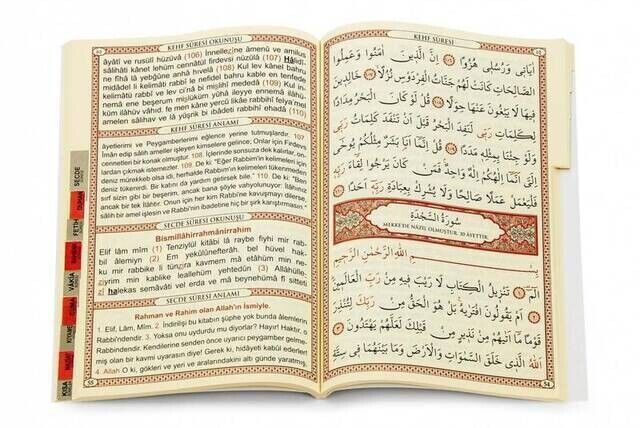 KEHF SÛRESİ OKUNUŞU
âyâtî ve rusulî hüzüvâ (106) İnnellezîne âmenû ve amilus
sâlihâti kânet lehüm cennâtül firdevsi nüzülâ (107) Hâlidî-
ne fîhâ lâ yebğûne anhâ hivelâ (108) Kul lev kânel bahru
midâdel li kelimâti rabbî le nefidel bahru kable en tenfede
kelimâtü rabbî ve lev ci'nâ bi mislihî mededâ (109) Kul in-
nemâ ene beşerum mislüküm yûhâ ileyye ennemâ ilâhü-
küm ilâhuv vâhid, fe men kâne yercû likâe rabbihî felya'mel
amelen sâlihav ve lâ yüşrik bi ıbâdeti rabbihî ehadâ (110)
KEHF SÛRESİ ANLAMI
âyetlerimi ve Peygamberlerimi eğlence yerine tutmuşlardır. 107.
İman edip sâlih ameller işleyen kimselere gelince; Onlar için Firdevs
cennetleri bir konak olmuştur. 108. İçlerinde sonsuza dek kalırlar, on-
lardan çıkmak istemezler. 109. De ki: "Eğer Rabbim'in kelimeleri için
deniz mürekkeb olsa idi, herhalde Rabbim'in kelimeleri tükenmeden
deniz tükenirdi. Bir katını da yardım getirsek bile." 110. De ki: "Ben
sırf sizin gibi bir beşerim, ancak bana şöyle vahyolunuyor: İlâhınız
ancak bir tek İlâhtır. Onun için her kim Rabbi'ne kavuşmayı dilerse,
sâlih bir amel işlesin ve Rabbi'nin ibadetine hiç bir şirk karıştırmasın."
SECDE SÛRESİ OKUNUŞU
Bismillâhirrahmânirrahim
Elif lâm mîm (1) Tenziylül kitâbi lâ raybe fiyhi mir rab-
bil âlemiyn (2) Em yekûlûnefterâh, bel hüvel hak-
ku mir rabbike li tünzira kavmem mâ etâhüm min ne-
ziyrim min kablike leallehüm yehtedûn (3) Allâhülle-
zî halekas semâvâti vel erda ve mâ beynehümâ fî sitteti
SECDE SÛRESİ ANLAMI
Rahman ve Rahim olan Allah'ın İsmiyle.
1. Elif, Lâm, Mîm. 2. İndirilişi bu kitabın şüphe yok bunda âlemlerin
Rabbi'ndendir. 3. Yoksa onu uydurdu mu diyorlar? Hayır! Haktır, o
Rabbin'dendir. Kendilerine senden önce uyarıcı peygamber gelme-
miş olan bir kavmi uyarasın diye! Gerek ki, hidâyeti kabûl ederler!
4. Allah O ki, gökleri ve yeri ve aralarındakini altı günde yaratmış,
SECDE
DUHAN
FETİH
VÂKIA
KEHF SÛRESİ
اٰيَاتٖي وَرُسُلٖي هُزُوًا ﴿١٠٦﴾ اِنَّ الَّذٖينَ اٰمَنُوا وَعَمِلُوا
الصَّالِحَاتِ كَانَتْ لَهُمْ جَنَّاتُ الْفِرْدَوْسِ نُزُلًا ﴿١٠٧﴾ خَالِدٖينَ
فٖيهَا لَا يَبْغُونَ عَنْهَا حِوَلًا ﴿١٠٨﴾ قُلْ لَوْ كَانَ الْبَحْرُ مِدَادًا
لِكَلِمَاتِ رَبّٖي لَنَفِدَ الْبَحْرُ قَبْلَ اَنْ تَنْفَدَ كَلِمَاتُ رَبّٖي
وَلَوْ جِئْنَا بِمِثْلِهٖ مَدَدًا ﴿١٠٩﴾ قُلْ اِنَّمَا اَنَا بَشَرٌ مِثْلُكُمْ يُوحٰى
اِلَيَّ اَنَّمَا اِلٰهُكُمْ اِلٰهٌ وَاحِدٌ فَمَنْ كَانَ يَرْجُوا لِقَاءَ رَبِّهٖ
فَلْيَعْمَلْ عَمَلًا صَالِحًا وَلَا يُشْرِكْ بِعِبَادَةِ رَبِّهٖ اَحَدًا ﴿١١٠﴾
سُورَةُ السَّجْدَةِ
MEKKE'DE NÂZİL OLMUŞTUR. 30 ÂYETTİR.
بِسْمِ اللّٰهِ الرَّحْمٰنِ الرَّحٖيمِ
الٓمٓ ﴿١﴾ تَنْزٖيلُ الْكِتَابِ لَا رَيْبَ فٖيهِ مِنْ رَبِّ الْعَالَمٖينَ
﴿٢﴾ اَمْ يَقُولُونَ افْتَرٰيهُ بَلْ هُوَ الْحَقُّ مِنْ رَبِّكَ لِتُنْذِرَ
قَوْمًا مَا اَتٰيهُمْ مِنْ نَذٖيرٍ مِنْ قَبْلِكَ لَعَلَّهُمْ يَهْتَدُونَ ﴿٣﴾
اَللّٰهُ الَّذٖي خَلَقَ السَّمٰوَاتِ وَالْاَرْضَ وَمَا بَيْنَهُمَا فٖي سِتَّةِ
54